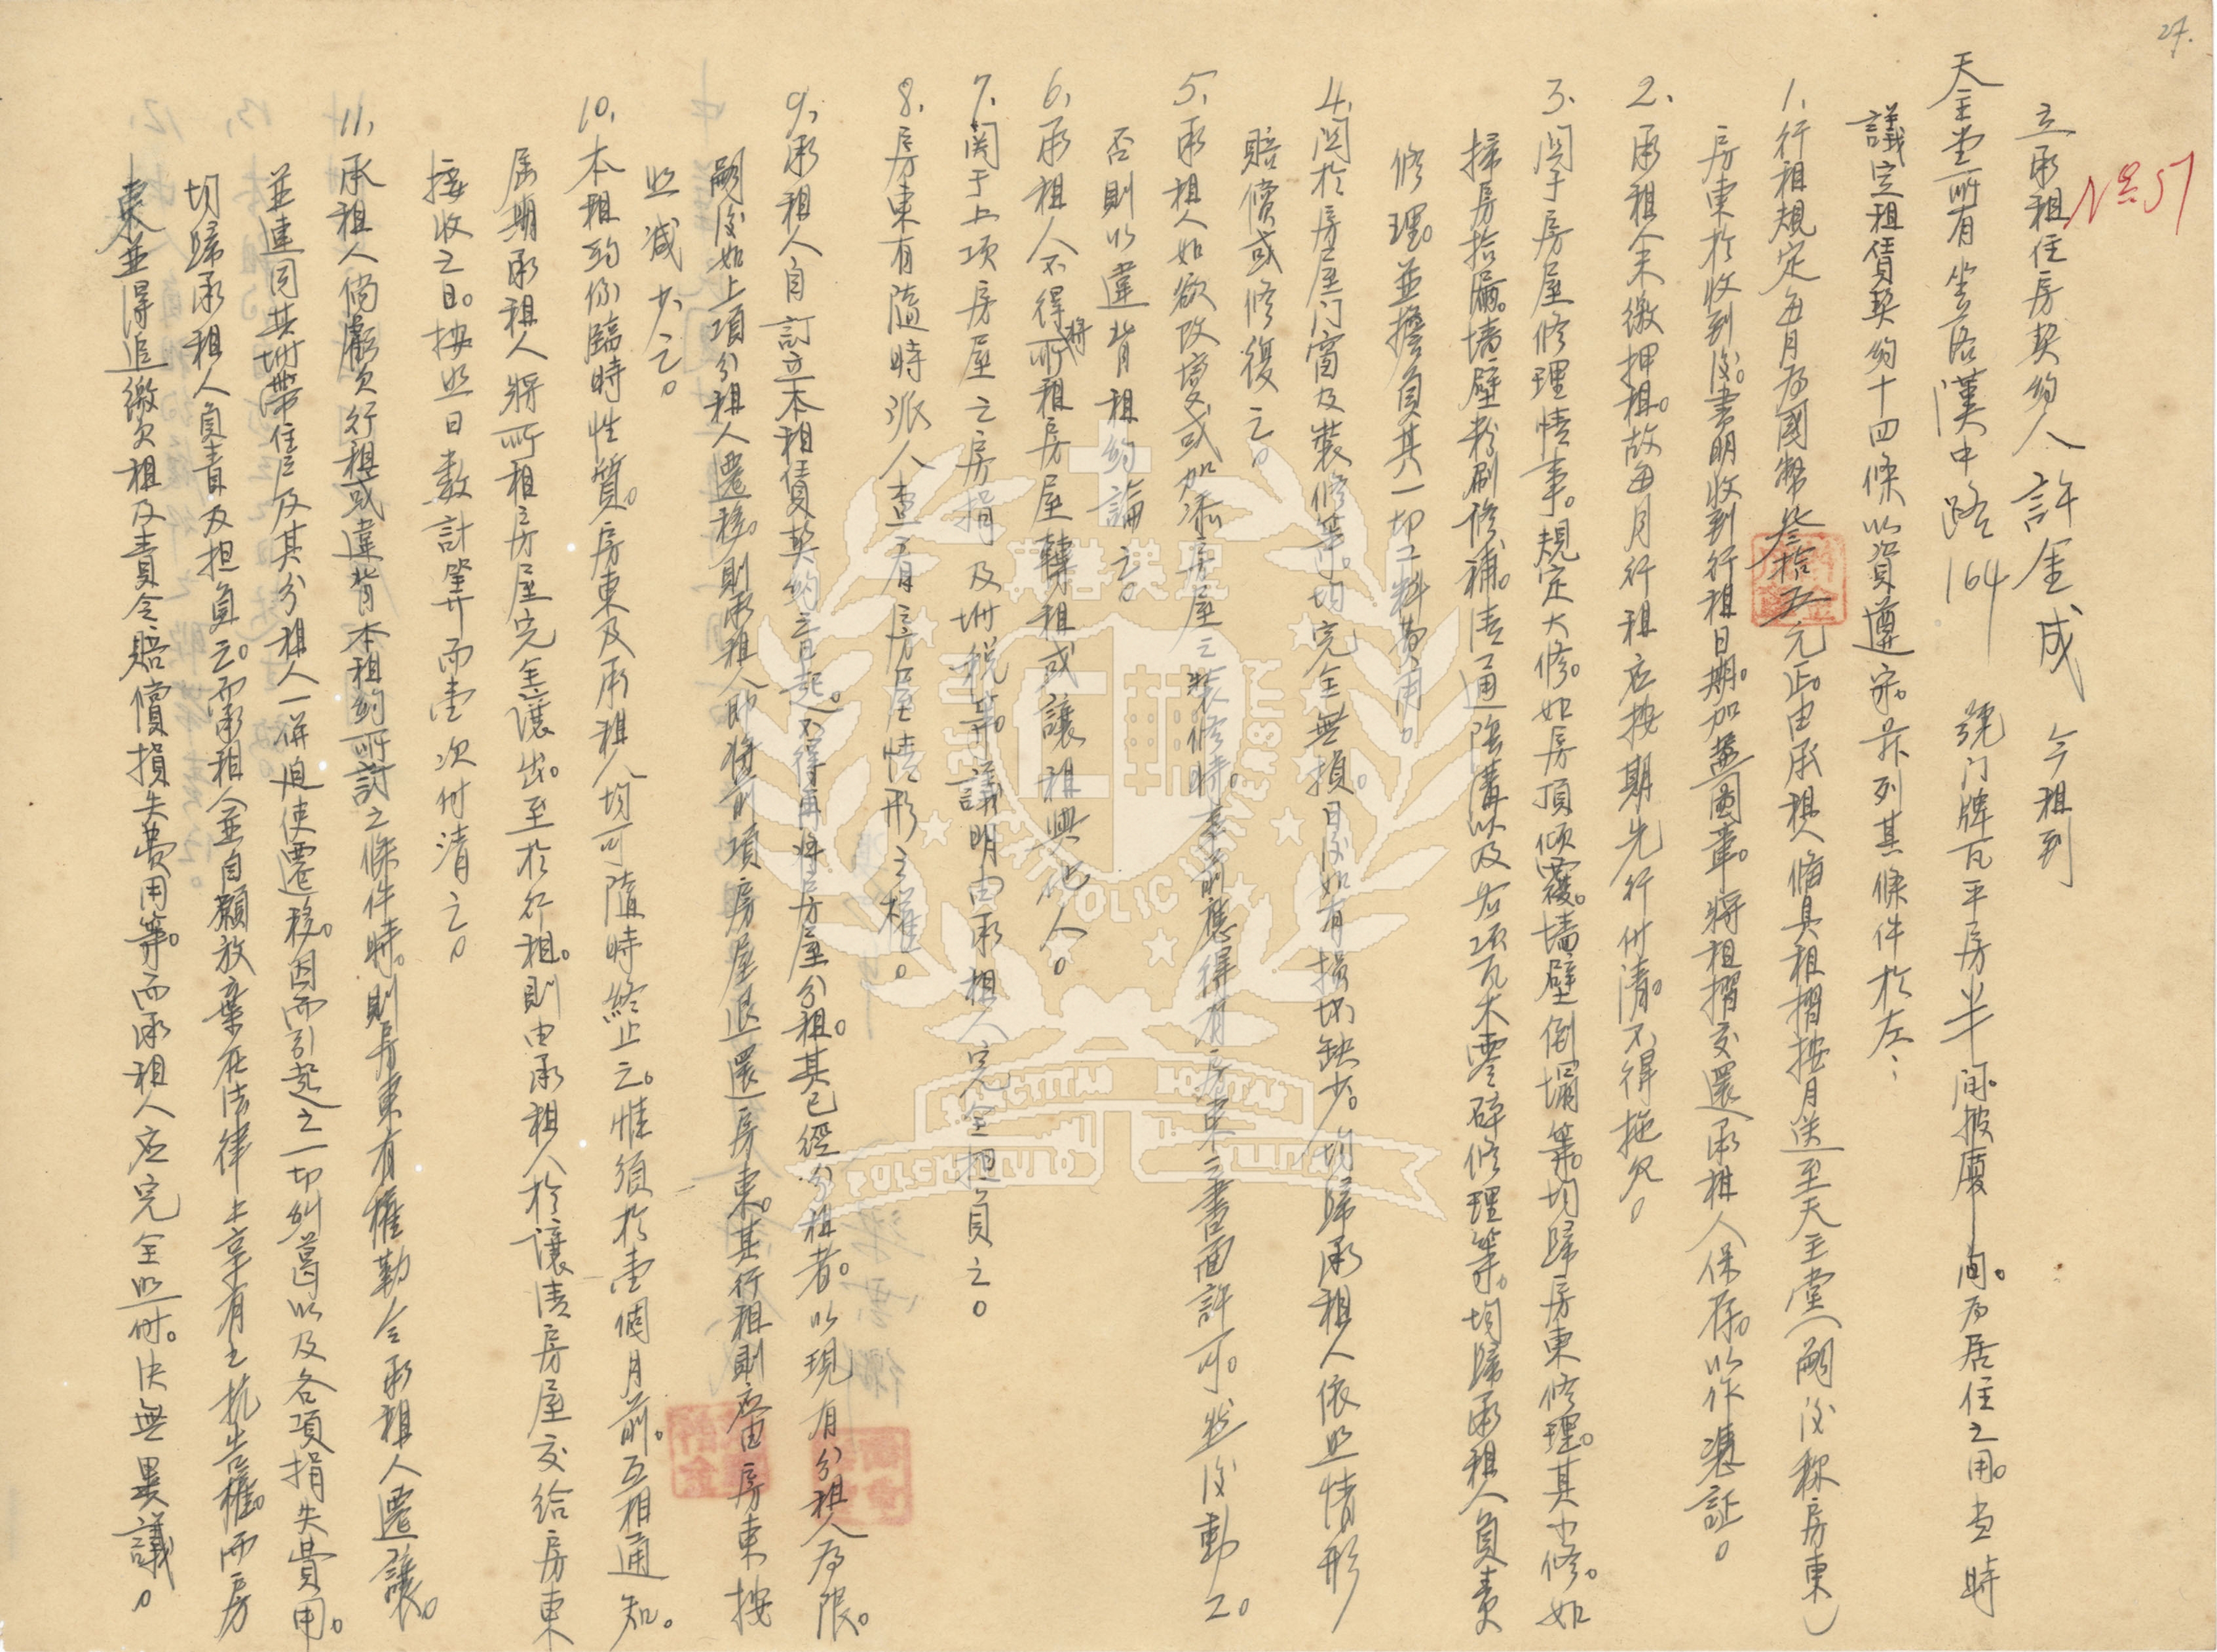 27.
No 51
立承租住房契約人許金成 今租到
天主堂所有坐落漢中路164號门牌瓦平房半间。披廈一间。為居住之用。當時
議定租賃契約十四條以資遵守。茲列其條件於左：
1. 行租規定每月為國幣叁拾五元正。由承租人備具租摺按月送至天主堂（嗣後称房東）
房東於收到後。書明收到行租日期。加蓋圖章。將租摺交還承租人保存。以作憑証。
2. 承租人未繳押租。故每月行租应按期先行付清。不得拖欠。
3. 関于房屋修理情事。規定大修。如房頂傾覆。墻壁倒塌等。均歸房東修理。其小修。如
掃房拾漏。墻壁粉刷修補。清通陰溝以及各项瓦木零碎修理等。均歸承租人負責
修理。並擔負其一切工料費用。
4. 関於房屋门窗及裝修等。均完全無損。日後如有損坏缺少。均歸承租人依照情形
賠償或修復之。
5. 承租人如欲改變或加添房屋之裝修時。事前應得有房東之書面許可。然後動工。
否則以違背租約論之。
6. 承租人不得將所租房屋轉租或讓租與他人。
7. 関于上項房屋之房捐及地税等。議明由承租人完全担負之。
8. 房東有隨時派人查看房屋情形之權。
9. 承租人自訂立本租賃契約之日起。不得再將房屋分租。其已經分租者。以現有分租人為限。
嗣後如上項分租人遷移。則承租人即將前項房屋退還房東。其行租則應由房東按
照减少之。
10. 本租約係臨時性質。房東及承租人均可隨時終止之。惟須於壹個月前。互相通知。
屆期承租人將所租房屋完全讓出。至於行租。則由承租人於讓清房屋交給房東
接收之日。按照日數計算而壹次付清之。
11. 承租人倘虧欠行租或違背本租約所訂之條件時。則房東有權勒令承租人遷讓。
並連同其坿帶住戶及其分租人一併迫使遷移。因而引起之一切糾葛以及各項損失費用。
切歸承租人負責及担負之。而承租人並自願放棄在法律上享有之抗告權。而房
東並得追繳欠租及責令賠償損失費用等。而承租人应完全照付。決無異議。
AUREA CATHOLIC UNIVERSITY
SANCTITAS BONITAS
PULCHRITUDO